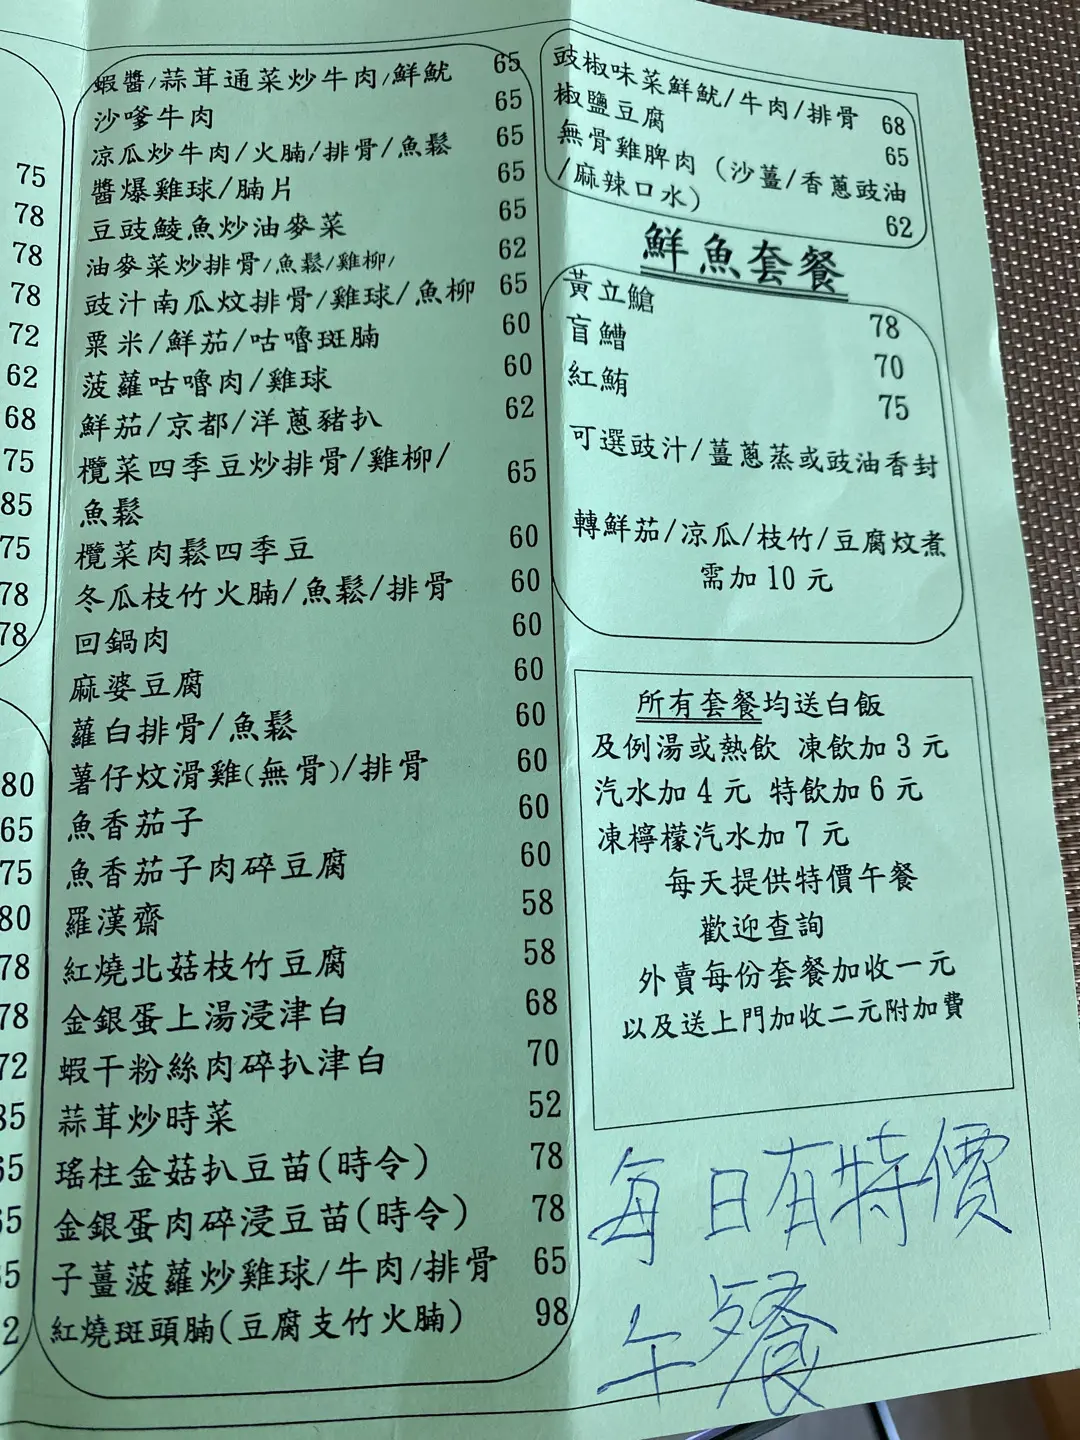 75
78
78
78
72
62
68
75
85
75
78
78
80
65
75
80
78
78
72
蝦醬/蒜茸通菜炒牛肉/鮮魷 65
沙嗲牛肉 65
凉瓜炒牛肉/火腩/排骨/魚鬆 65
醬爆雞球/腩片 65
豆豉鯪魚炒油麥菜 65
油麥菜炒排骨/魚鬆/雞柳/ 62
豉汁南瓜炆排骨/雞球/魚柳 65
粟米/鮮茄/咕嚕斑腩 60
菠蘿咕嚕肉/雞球 60
鮮茄/京都/洋蔥豬扒 62
欖菜四季豆炒排骨/雞柳/
魚鬆 65
欖菜肉鬆四季豆 60
冬瓜枝竹火腩/魚鬆/排骨 60
回鍋肉 60
麻婆豆腐 60
蘿白排骨/魚鬆 60
薯仔炆滑雞(無骨)/排骨 60
魚香茄子 60
魚香茄子肉碎豆腐 60
羅漢齋 58
紅燒北菇枝竹豆腐 58
金銀蛋上湯浸津白 68
蝦干粉絲肉碎扒津白 70
蒜茸炒時菜 52
瑤柱金菇扒豆苗(時令) 78
金銀蛋肉碎浸豆苗(時令) 78
子薑菠蘿炒雞球/牛肉/排骨 65
紅燒斑頭腩(豆腐支竹火腩) 98
豉椒味菜鮮魷/牛肉/排骨 68
椒鹽豆腐 65
無骨雞脾肉 (沙薑/香蔥豉油
/麻辣口水) 62
鮮魚套餐
黃立鱠 78
盲鰽 70
紅鮪 75
可選豉汁/薑蔥蒸或豉油香封
轉鮮茄/凉瓜/枝竹/豆腐炆煮
需加10元
所有套餐均送白飯
及例湯或熱飲 凍飲加3元
汽水加4元 特飲加6元
凍檸檬汽水加7元
每天提供特價午餐
歡迎查詢
外賣每份套餐加收一元
以及送上門加收二元附加費
每日有特價
午餐